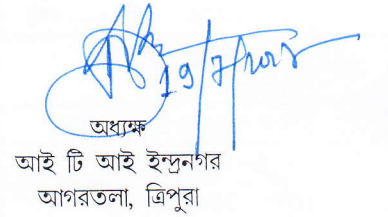 19/7/2025
অধ্যক্ষ
আই টি আই ইন্দ্রনগর
আগরতলা, ত্রিপুরা